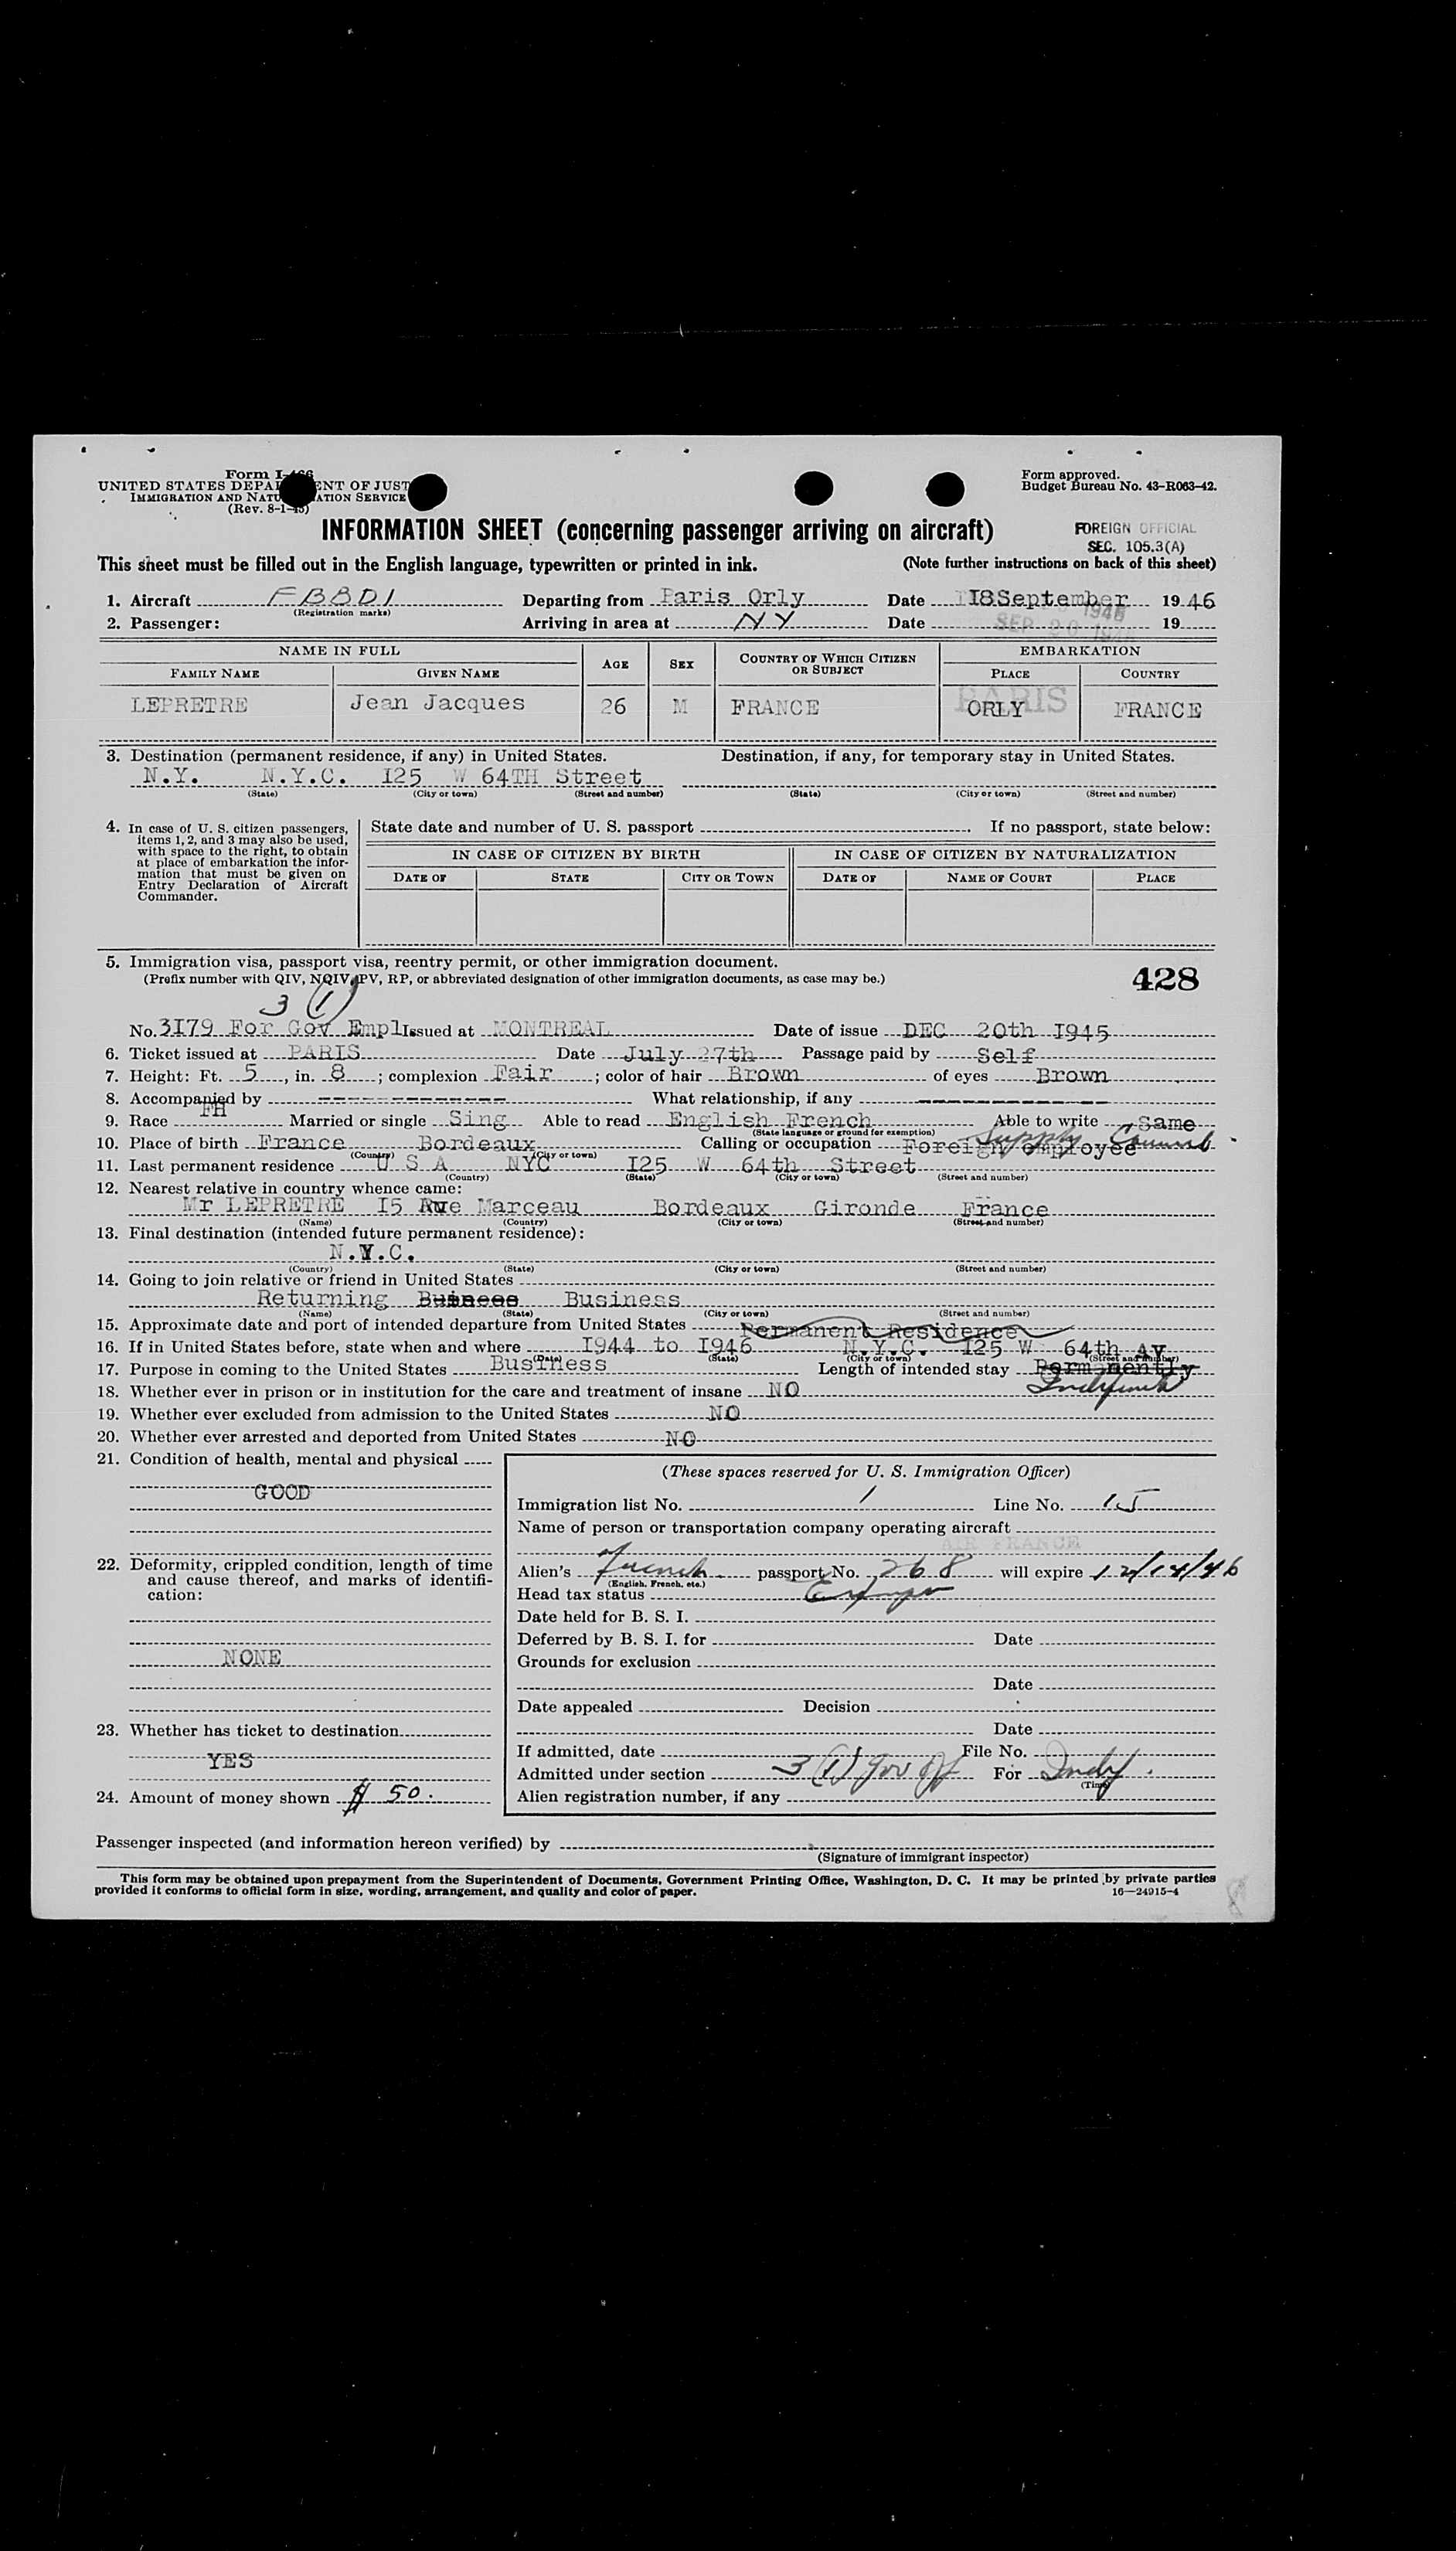 Form I-466
UNITED STATES DEPA ENT OF JUST
IMMIGRATION AND NATU ATION SERVICE
(Rev. 8-1-45)
Form approved.
Budget Bureau No. 43-R063-42.
INFORMATION SHEET (concerning passenger arriving on aircraft)
FOREIGN OFFICIAL
SEC. 105.3(A)
This sheet must be filled out in the English language, typewritten or printed in ink. (Note further instructions on back of this sheet)
1. Aircraft FBBDI Departing from Paris Orly Date I8September 1946
(Registration marks)
2. Passenger: Arriving in area at NY Date SEP 20 1946 19
NAME IN FULL AGE SEX COUNTRY OF WHICH CITIZEN OR SUBJECT EMBARKATION
FAMILY NAME GIVEN NAME PLACE COUNTRY
LEPRETRE Jean Jacques 26 M FRANCE PARIS ORLY FRANCE
3. Destination (permanent residence, if any) in United States. Destination, if any, for temporary stay in United States.
N.Y. N.Y.C. I25 W 64TH Street
(State) (City or town) (Street and number) (State) (City or town) (Street and number)
4. In case of U. S. citizen passengers, items 1, 2, and 3 may also be used, with space to the right, to obtain at place of embarkation the information that must be given on Entry Declaration of Aircraft Commander.
State date and number of U. S. passport If no passport, state below:
IN CASE OF CITIZEN BY BIRTH IN CASE OF CITIZEN BY NATURALIZATION
DATE OF STATE CITY OR TOWN DATE OF NAME OF COURT PLACE
5. Immigration visa, passport visa, reentry permit, or other immigration document.
(Prefix number with QIV, NQIV, PV, RP, or abbreviated designation of other immigration documents, as case may be.)
428
3 (1)
No. 3I79 For Gov Empl Issued at MONTREAL Date of issue DEC 20th I945
6. Ticket issued at PARIS Date July 27th Passage paid by Self
7. Height: Ft. 5, in. 8; complexion Fair; color of hair Brown of eyes Brown
8. Accompanied by What relationship, if any
9. Race FH Married or single Sing Able to read English French Able to write Same
(State language or ground for exemption)
10. Place of birth France Bordeaux Calling or occupation Foreign employee Supply Council
(Country) (City or town)
11. Last permanent residence U S A NYC I25 W 64th Street
(Country) (State) (City or town) (Street and number)
12. Nearest relative in country whence came:
Mr LEPRETRE I5 Rue Marceau Bordeaux Gironde France
(Name) (Country) (City or town) (Street and number)
13. Final destination (intended future permanent residence):
N.Y.C.
(Country) (State) (City or town) (Street and number)
14. Going to join relative or friend in United States
Returning Businees Business
(Name) (State) (City or town) (Street and number)
15. Approximate date and port of intended departure from United States Permanent Residence
16. If in United States before, state when and where I944 to I946 N.Y.C. I25 W 64th AV
(Date) (State) (City or town) (Street and number)
17. Purpose in coming to the United States Business Length of intended stay Permanently
18. Whether ever in prison or in institution for the care and treatment of insane NO Indefinite
19. Whether ever excluded from admission to the United States NO
20. Whether ever arrested and deported from United States NO
21. Condition of health, mental and physical
GOOD
22. Deformity, crippled condition, length of time and cause thereof, and marks of identification:
NONE
23. Whether has ticket to destination
YES
24. Amount of money shown $ 50.
(These spaces reserved for U. S. Immigration Officer)
Immigration list No. 1 Line No. 15
Name of person or transportation company operating aircraft
AIR FRANCE
Alien's French passport No. 268 will expire 12/14/46
(English, French, etc.)
Head tax status
Date held for B. S. I.
Deferred by B. S. I. for Date
Grounds for exclusion
Date
Date appealed Decision
Date
If admitted, date File No.
Admitted under section 3(1) Gov Off For Indef.
(Time)
Alien registration number, if any
Passenger inspected (and information hereon verified) by
(Signature of immigrant inspector)
This form may be obtained upon prepayment from the Superintendent of Documents, Government Printing Office, Washington, D. C. It may be printed by private parties
provided it conforms to official form in size, wording, arrangement, and quality and color of paper. 16—24915-4